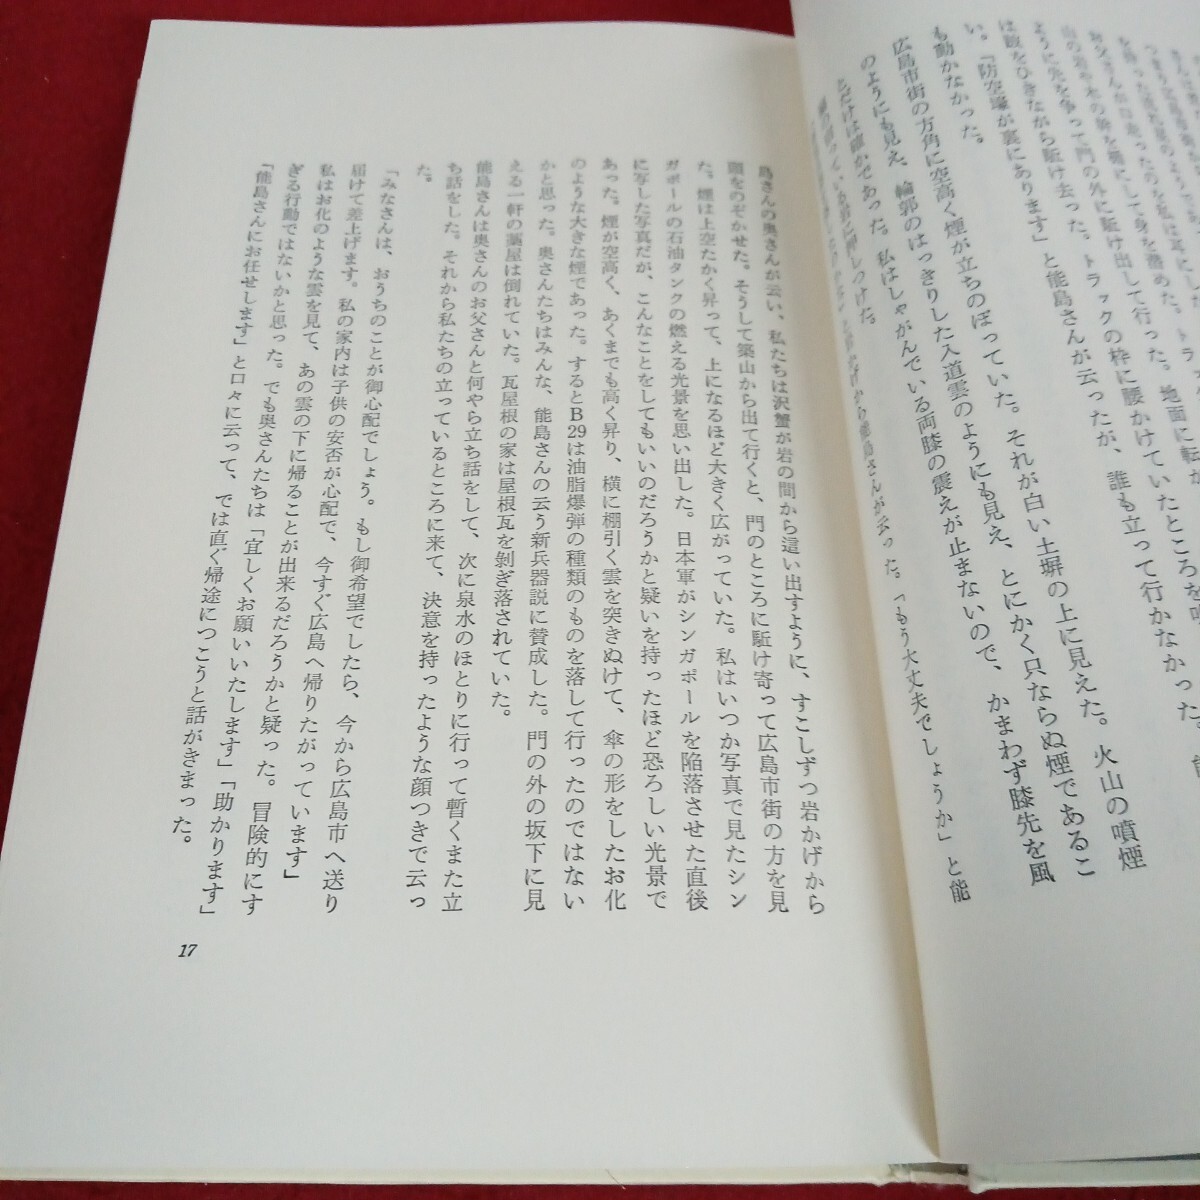 つまり交
を持った
おじさんが
山の岩や木の幹を楯にして身を潜めた。トラ
ように先を争って門の外に駈け出して行った。地面に転が
は跛をひきながら駈け去った。トラックの枠に腰かけていたところを
い。「防空壕が裏にあります」と能島さんが云ったが、誰も立って行かなかった。
も動かなかった。
広島市街の方角に空高く煙が立ちのぼっていた。それが白い土塀の上に見えた。火山の噴煙
のようにも見え、輪郭のはっきりした入道雲のようにも見え、とにかく只ならぬ煙であるこ
とだけは確かであった。私はしゃがんでいる両膝の震えが止まないので、かまわず膝先を風
岩に押しつけた。
から能島さんが云った。「もう大丈夫でしょうか」と能
島さんの奥さんが云い、私たちは沢蟹が岩の間から這い出すように、すこしずつ岩かげから
頭をのぞかせた。そうして築山から出て行くと、門のところに駈け寄って広島市街の方を見
た。煙は上空たかく昇って、上になるほど大きく広がっていた。私はいつか写真で見たシン
ガポールの石油タンクの燃える光景を思い出した。日本軍がシンガポールを陥落させた直後
に写した写真だが、こんなことをしてもいいのだろうかと疑いを持ったほど恐ろしい光景で
あった。煙が空高く、あくまでも高く昇り、横に棚引く雲を突きぬけて、傘の形をしたお化
のような大きな煙であった。するとB29は油脂爆弾の種類のものを落して行ったのではない
かと思った。奥さんたちはみんな、能島さんの云う新兵器説に賛成した。門の外の坂下に見
える一軒の藁屋は倒れていた。瓦屋根の家は屋根瓦を剝ぎ落されていた。
能島さんは奥さんのお父さんと何やら立ち話をして、次に泉水のほとりに行って暫くまた立
ち話をした。それから私たちの立っているところに来て、決意を持ったような顔つきで云っ
た。
「みなさんは、おうちのことが御心配でしょう。もし御希望でしたら、今から広島市へ送り
届けて差上げます。私の家内は子供の安否が心配で、今すぐ広島へ帰りたがっています」
私はお化のような雲を見て、あの雲の下に帰ることが出来るだろうかと疑った。冒険的にす
ぎる行動ではないかと思った。でも奥さんたちは「宜しくお願いいたします」「助かります」
「能島さんにお任せします」と口々に云って、では直ぐ帰途につこうと話がきまった。
17